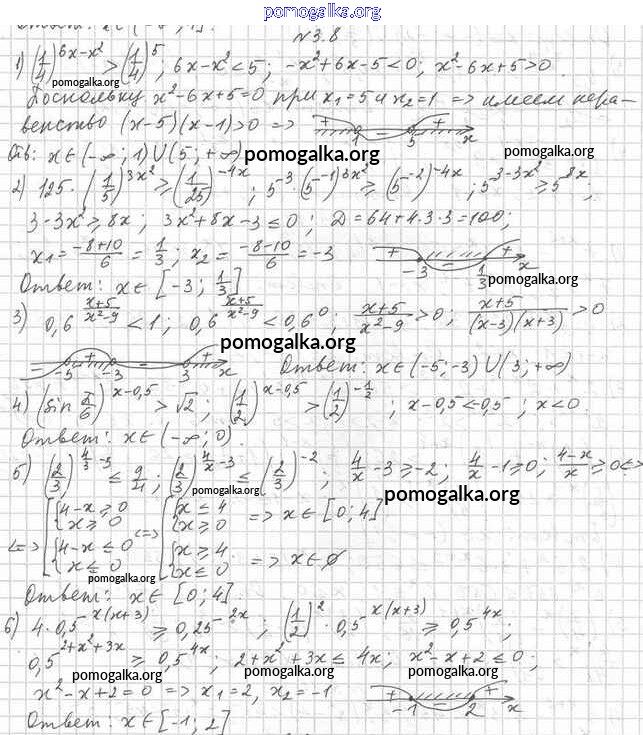 pomogalka.org
Ответ: x∈(-8; 1].
№3.8
1) (1/4)^(6x-x²) > (1/4)^5; 6x-x²<5; -x²+6x-5<0; x²-6x+5>0
pomogalka.org
Поскольку x²-6x+5=0 при x₁=5 и x₂=1 => имеем нера-
венство (x-5)(x-1)>0 => + 1 - 5 + x
Отв: x∈(-∞; 1)∪(5; +∞) pomogalka.org pomogalka.org
2) 125·(1/5)^(3x²) ≥ (1/25)^(-4x); 5^-3·(5^-1)^(3x²) ≥ (5^-2)^(-4x); 5^(3-3x²) ≥ 5^(8x);
3-3x²≥8x; 3x²+8x-3≤0; D=64+4·3·3=100;
x₁=(-8+10)/6=1/3; x₂=(-8-10)/6=-3 + -3 - 1/3 + x
Ответ: x∈[-3; 1/3] pomogalka.org
3) 0,6^((x+5)/(x²-9))<1; 0,6^((x+5)/(x²-9))<0,6^0; (x+5)/(x²-9)>0; (x+5)/((x-3)(x+3))>0
pomogalka.org
- -5 + -3 - 3 + x Ответ: x∈(-5;-3)∪(3;+∞)
4) (sin π/6)^(x-0,5) > √2; (1/2)^(x-0,5) > (1/2)^(-1/2); x-0,5<-0,5; x<0.
Ответ: x∈(-∞; 0).
5) (2/3)^(4/x-3) ≤ 9/4; (2/3)^(4/x-3) ≤ (2/3)^-2; 4/x-3≥-2; 4/x-1≥0; (4-x)/x≥0 <=>
pomogalka.org pomogalka.org
<=> [{4-x≥0 x≥0 {4-x≤0 x≤0 <=> [{x≤4 x≥0 => x∈[0; 4] {x≥4 x≤0 => x∈∅
pomogalka.org
Ответ: x∈[0; 4].
6) 4·0,5^(x(x+3)) ≥ 0,25^(2x); (1/2)^-2·0,5^(x(x+3)) ≥ 0,5^(4x);
0,5^(2+x²+3x) ≥ 0,5^(4x); 2+x²+3x≤4x; x²-x+2≤0;
pomogalka.org pomogalka.org
x²-x+2=0 => x₁=2, x₂=-1 + -1 - 2 + x
Ответ: x∈[-1; 2]